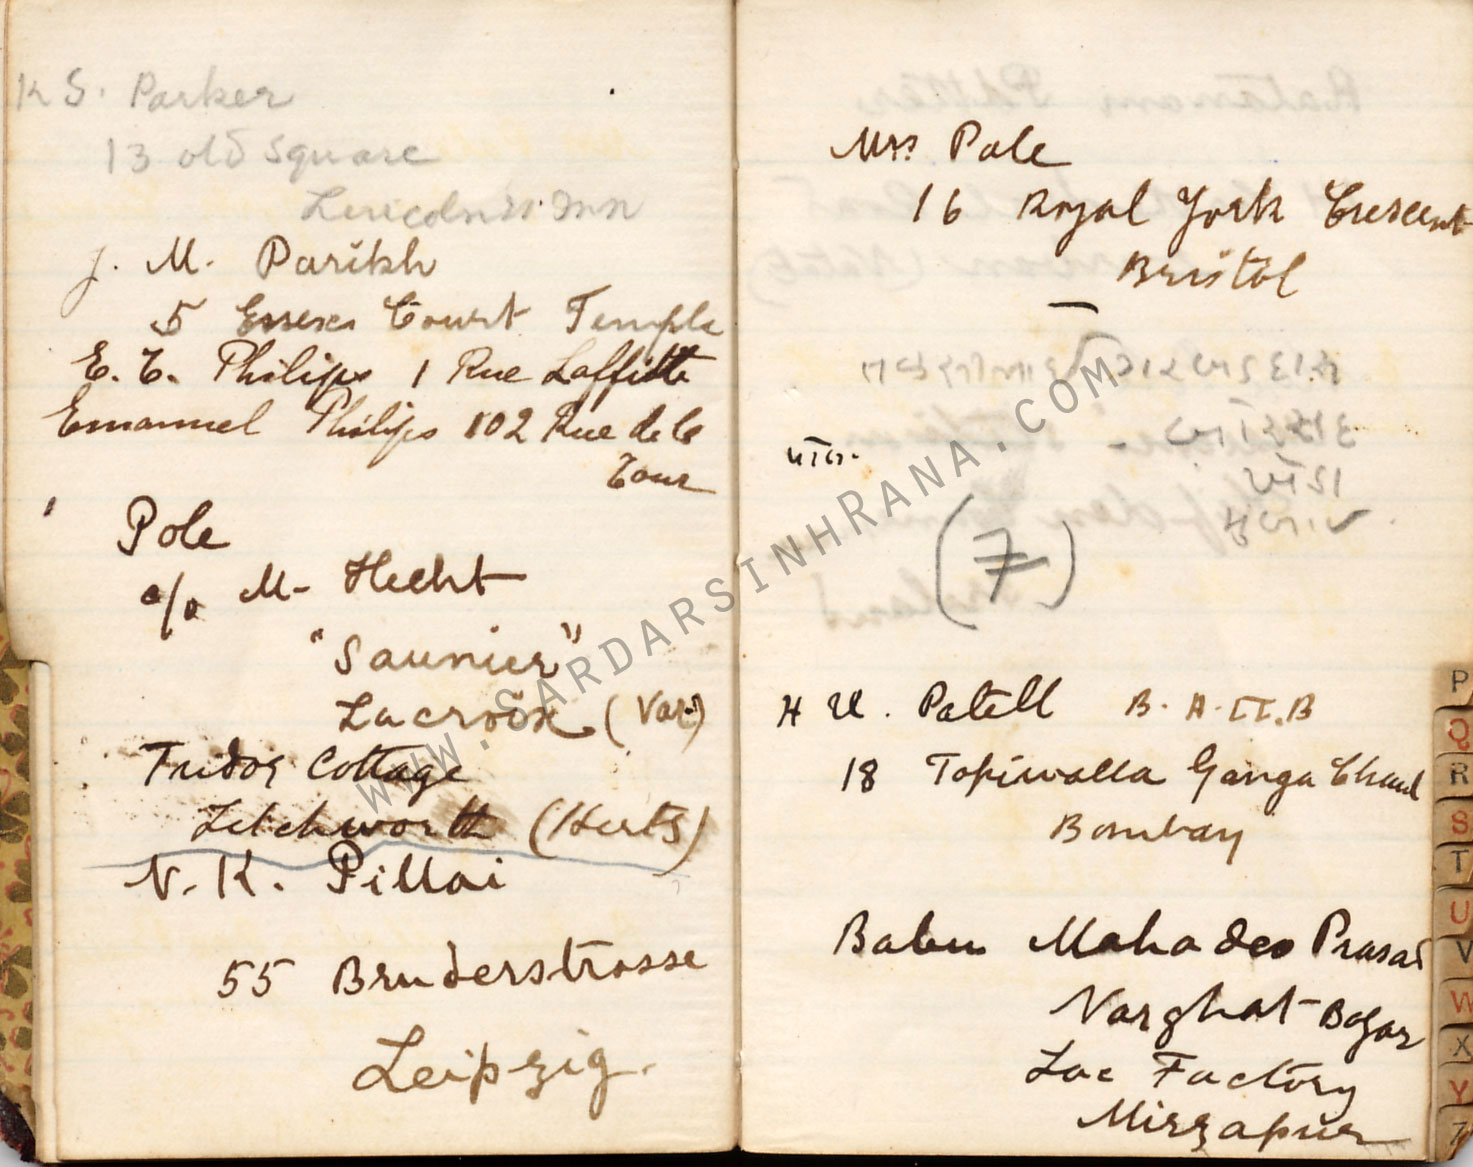 K S. Parker
13 old Square
Lincoln's Inn
J. M. Parikh
5 Essex Court Temple
E. E. Philips 1 Rue Laffitte
Emannel Philips 102 Rue de la
Tour
Pole
c/o M. Hecht
"Saunier"
Lacroix (Var)
Tudor Cottage
Letchworth (Herts)
N. K. Pillai
55 Bruderstrasse
Leipzig.
Mrs Pole
16 Royal York Crescent
Bristol
(7)
H U. Patell B. A. LL. B
18 Topiwalla Ganga Chaul
Bombay
Babu Mahadeo Prasad
Narghat Bazar
Lac Factory
Mirzapur
P
Q
R
S
T
U
V
W
X
Y
Z
WWW.SARDARSINHRANA.COM